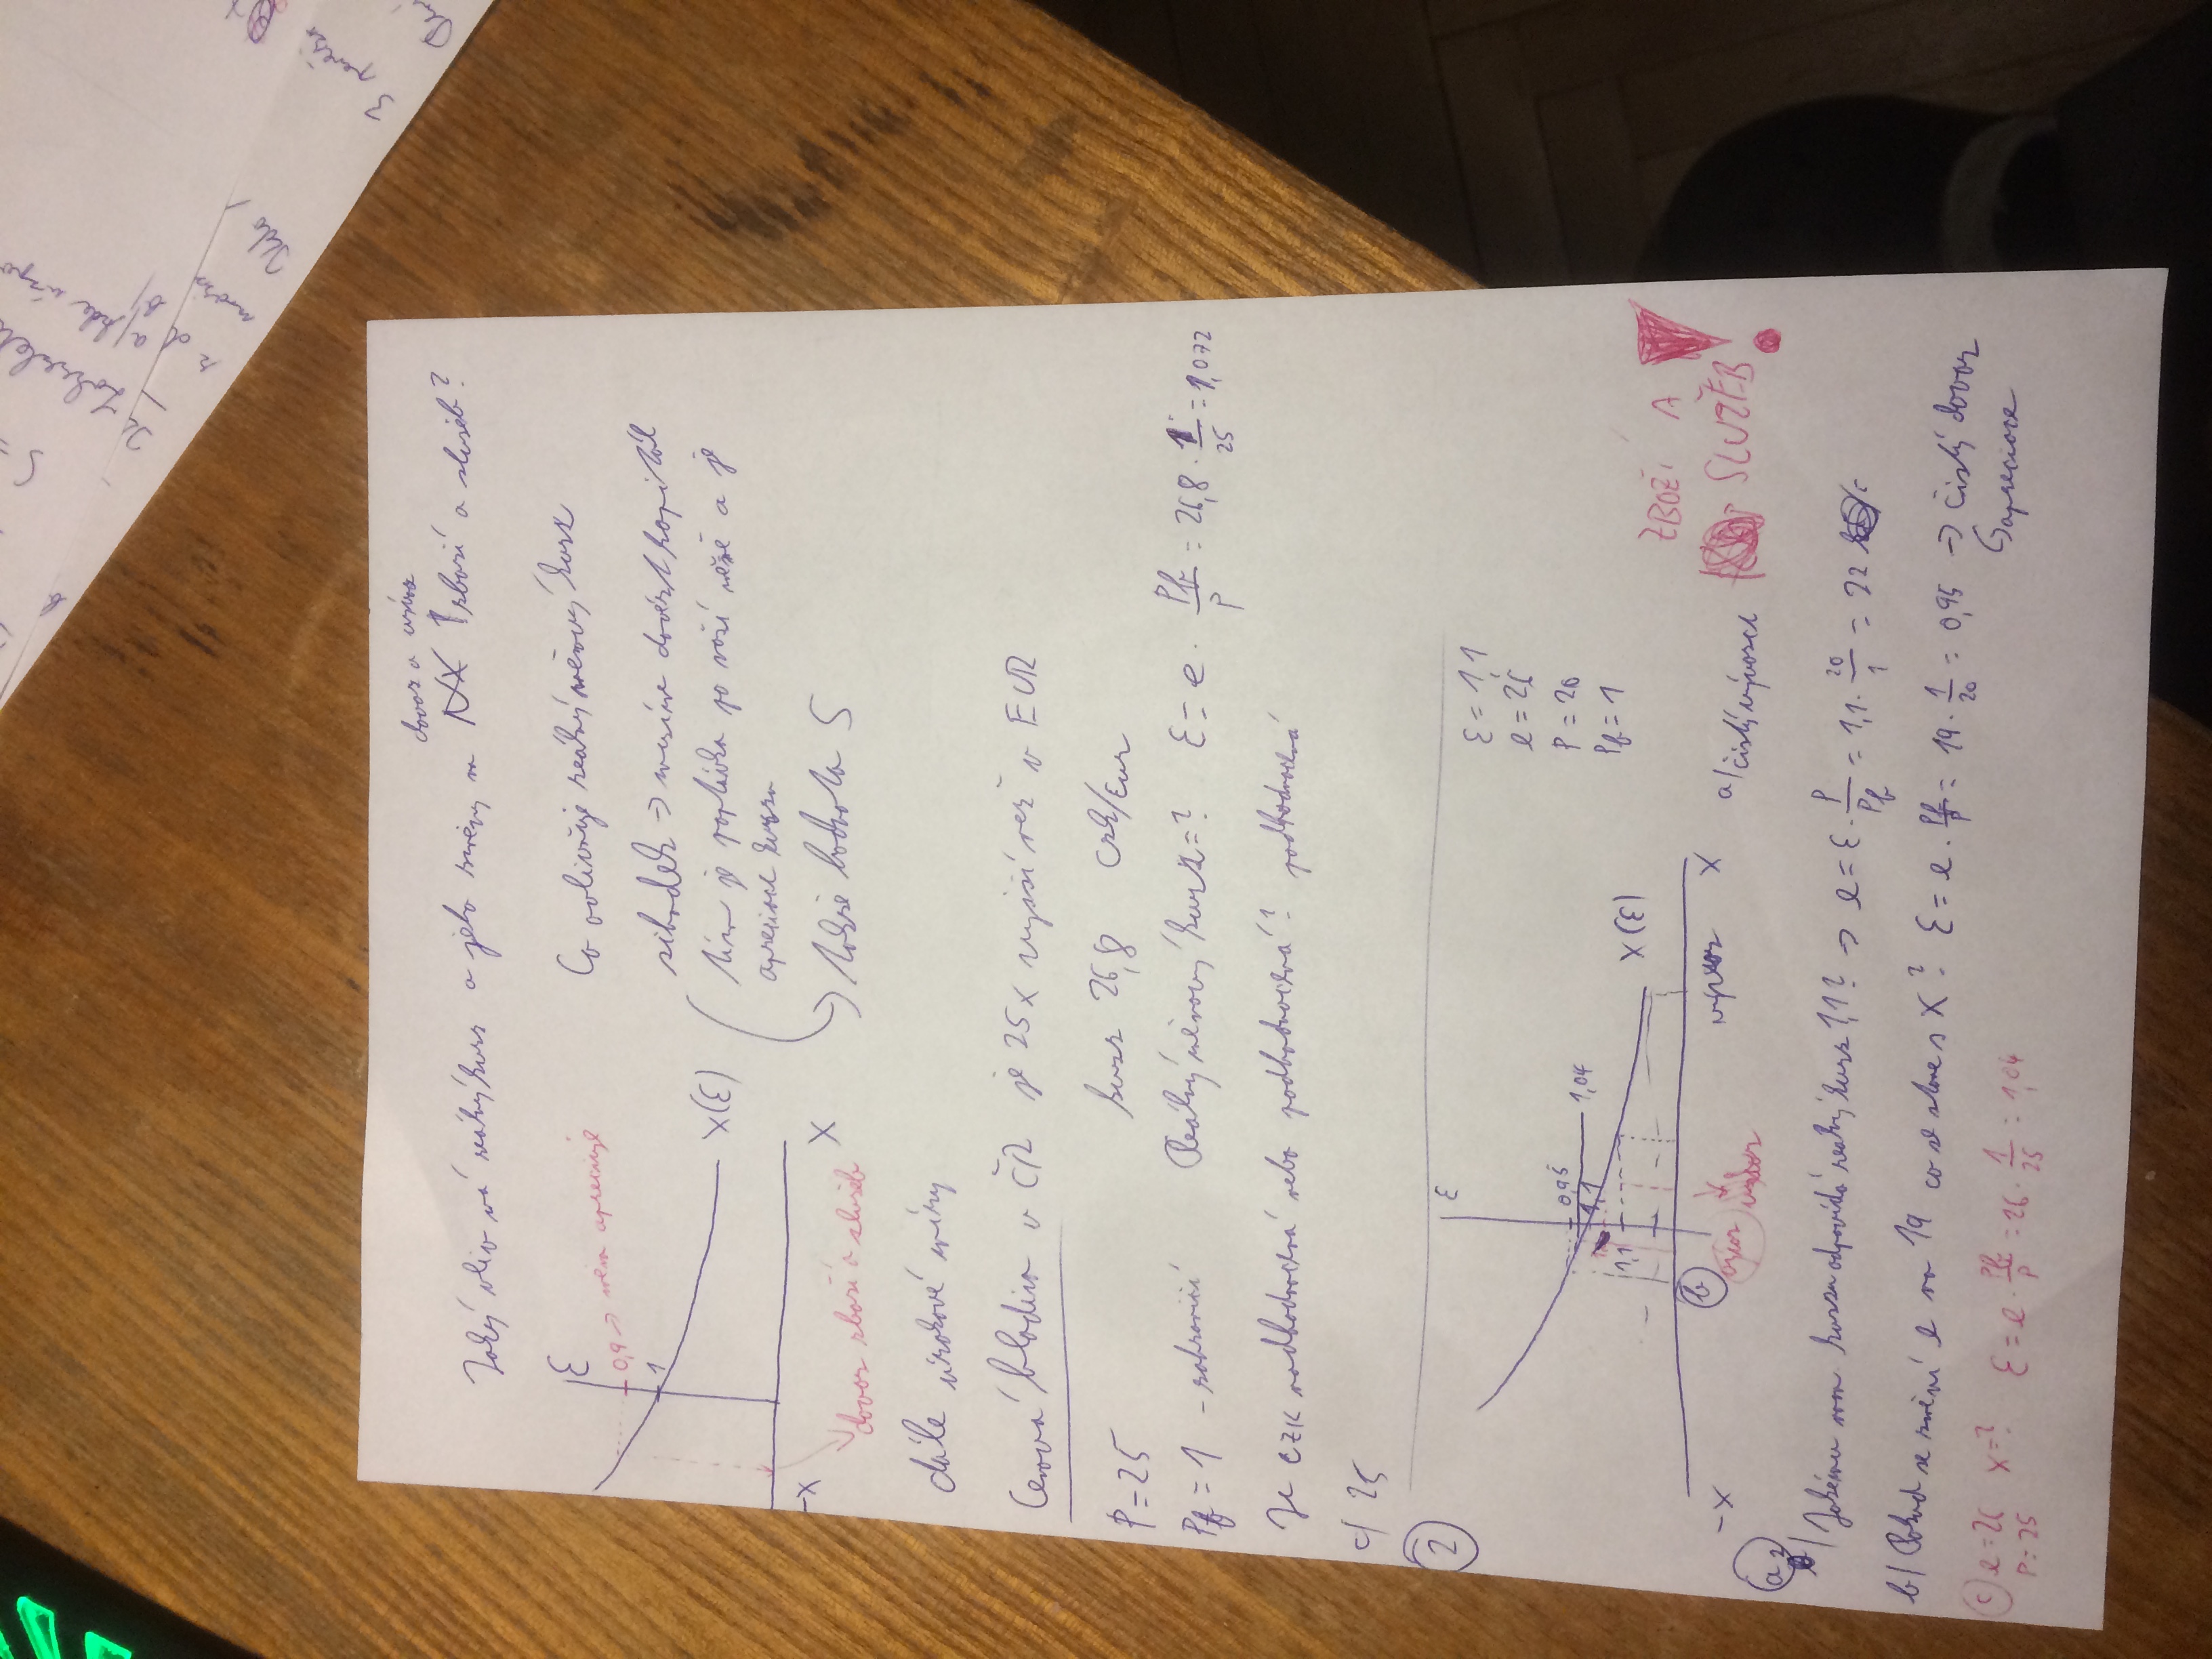 dovoz a vývoz
Jaký vliv má reálný kurz a jeho změny na NX zboží a služeb?
ε
0,9 → měna apreciuje
1
X(ε)
-X
X
dovoz zboží a služeb
Co ovlivňuje reálný měnový kurz
→ musíme dovézt kapitál
tím je poptávka po naší měně a je
apreciace kurzu
→ také hodnota S
dále úrokové míry
Cenová hladina v ČR je 25x vyšší než v EUR
kurz 26,8 CZK/Eur
P=25
Pf = 1 - zahraničí
Reálný měnový kurz=? ε = e · Pf/P = 26,8 · 1/25 = 1,072
Je CZK nadhodnocená nebo podhodnocená? podhodnocená
c/ 25
2
ε
0,95
1,04
1,1
1,1
X(ε)
-X
b
vývoz
X
ε = 1,1
e = 26
P = 20
Pf = 1
ZBOŽÍ A
SLUŽEB !
a/ čistý vývozce
a2
Jakému nom kurzu odpovídá reálný kurz 1,1? → e = ε · P/Pf = 1,1 · 20/1 = 22
b/ Pokud se změní e na 19 co se stane s X? ε = e · Pf/P = 19 · 1/20 = 0,95 → čistý dovoz
apreciace
c e = 26 X=? ε = e · Pf/P = 26 · 1/25 = 1,04
P = 25
3
Kdo